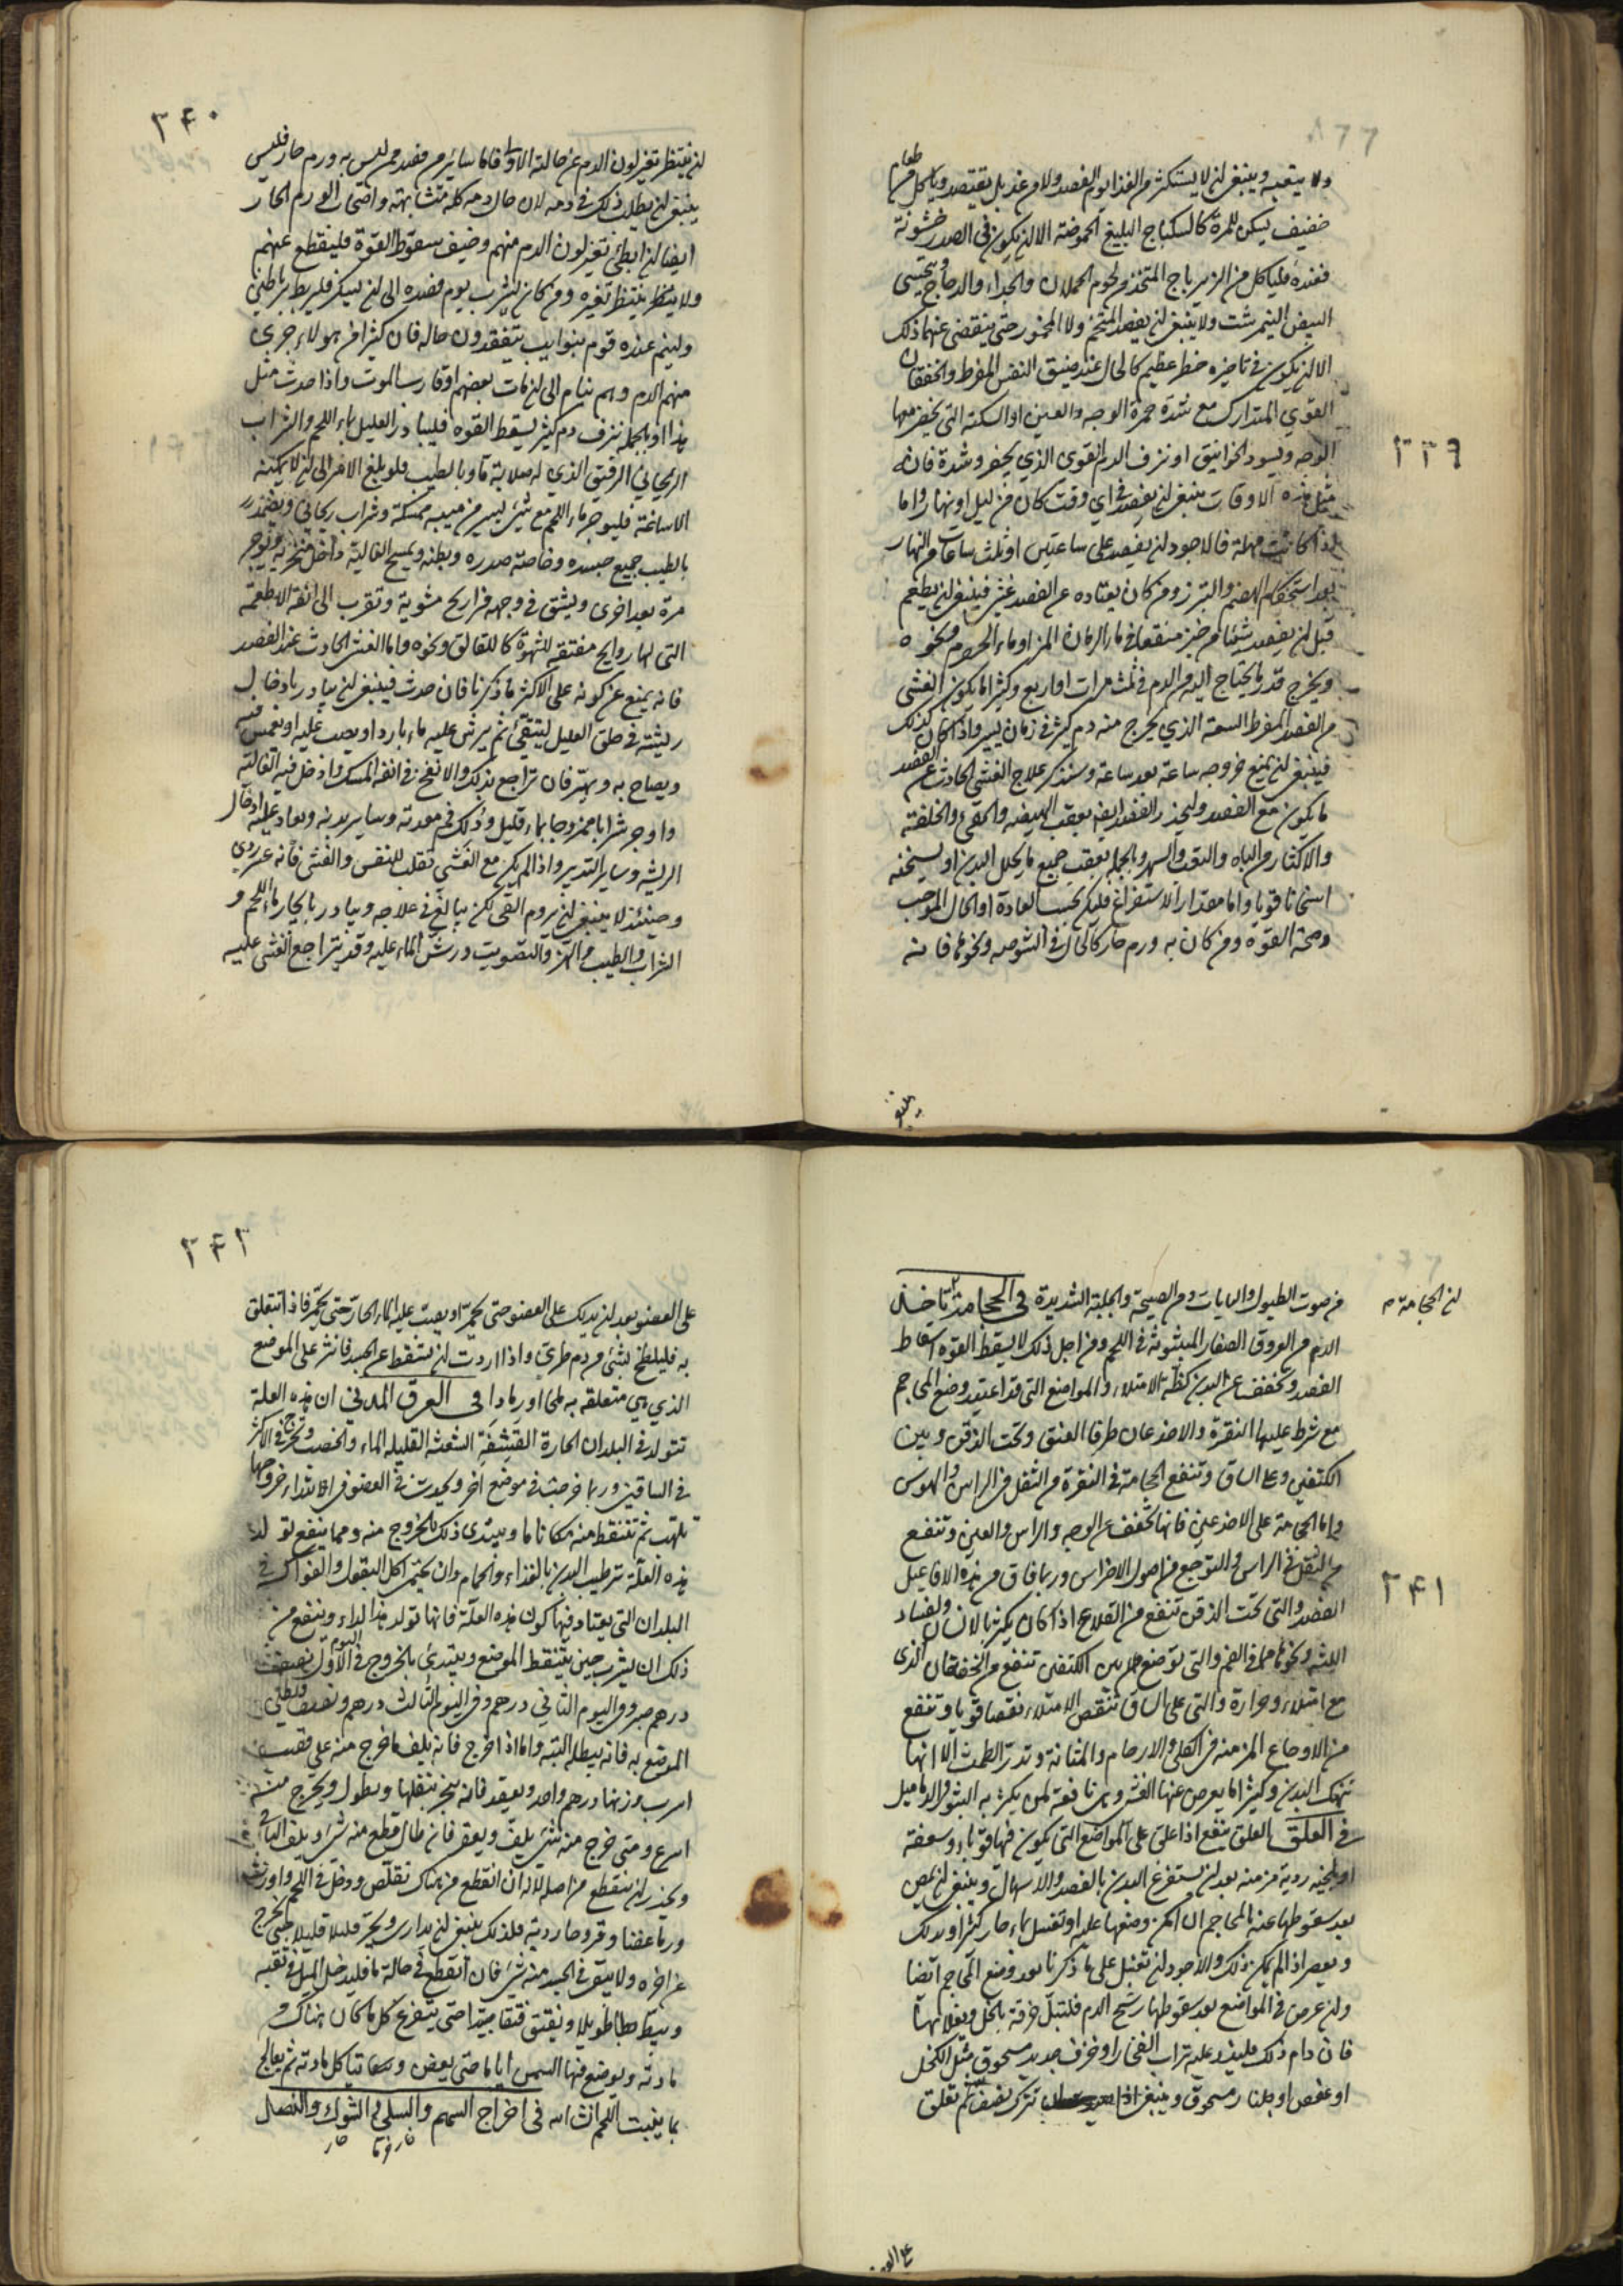 ٣٣٩
ولا يتعبه وينبغي ان لا يستكثر من الغذا يوم الفصد ولا من غد بل يقتصد ويأكل من طعام
خفيف يسكن المرة كالسكباج البليغ الحموضة الا ان يكون في الصدر خشونة
فعنده فليأكل من الزيرباج المتخذ من لحوم الحملان والجداء والدجاج ويتحسى
البيض النيمرشت ولا ينبغي ان يفصد المتخم ولا المخمور حتى ينقضي عنهما ذلك
الا ان يكون في تاخيره خطر عظيم كالحال عند ضيق النفس المفرط والخفقان
القوي المتدارك مع شدة حمرة الوجه والعين او السكتة التي يخضر معها
الوجه ويسود الخوانيق او نزف الدم القوي الذي يحفز وشدة فان
مثل هذه الاوقات ينبغي ان يفصد في اي وقت كان من ليل او نهار واما
اذا كانت مهلة فالاجود ان يفصد على ساعتين او ثلث ساعات من النهار
بعد استحكام الهضم والتبرز ومن كان يعتاده عن الفصد غشي فينبغي ان يطعم
قبل ان يفصد شيئا من خبز منقعا في ماء الرمان المز او ماء الحصرم ونحوه
ويخرج قدر ما يحتاج اليه من الدم في ثلث مرات او اربع وكثيرا ما يكون الغشي
من الفصد المفرط السعة الذي يخرج منه دم كثير في زمان يسير واذا كان كذلك
فينبغي ان يمنع خروجه ساعة بعد ساعة وسنذكر علاج الغشي الحادث عن الفصد
ما يكون مع الفصد وليحذر الفصد ايضا بعقب الهيضة والقيء والخلفة
والاكثار من الباه والتعب والسهر وبالجملة بعقب جميع ما يحلل البدن او يسخنه
اسخانا قويا واما مقدار الاستفراغ فليكن بحسب العادة او الحال الموجب
وصحة القوة ومن كان به ورم حار كالحال في الشوصه ونحوها فانه
ينبغي
٣٤٠
ان ينتظر تغير لون الدم عن حالته الاولى فاما سائر من فصد ممن ليس به ورم حار فليس
ينبغي ان يطلب ذلك في دمه لان حال دمه كله متشابهة واصحاب الورم الحار
ايضا ان ابطئ تغير لون الدم منهم وخيف سقوط القوة فلينقطع عنهم
ولا ينتظر تغيره ومن كان ان يشرب يوم فصده الى ان يسكر فليربط رباطين
ولينم عنده قوم بنوايب يتفقدون حاله فان كثيرا من هولاء جرى
منهم الدم وهم نيام الى ان مات بعضهم او قارب الموت واذا حدث مثل
هذا او بالجملة نزف دم كثير يسقط القوه فليبادر العليل بماء اللحم والشراب
الريحاني الرقيق الذي له صلابة ما وبالطيب فلو بلغ الامر الى ان لا يمكنه
الاساغة فليوجر ماء اللحم مع شيء يسير من ميبه ممسكة وشراب ريحاني ويضمد
بالطيب جميع جسده وخاصة صدره وبطنه ويمسح الغالية داخل منخريه ويوجر
مرة بعد اخرى ويشق في وجهه فراريج مشوية وتقرب الى انفه الاطعمة
التي لها روايح مفتقه للشهوة كالقلايا ونحوه واما الغشي الحادث عند الفصد
فانه يمنع عن كونه على الاكثر ما ذكرنا فان حدث فينبغي ان يبادر بادخال
ريشة في حلق العليل ليتقيأ ثم يرش عليه ماء بارد او يصب عليه او يغمس فيه
ويصاح به ويهز فان تراجع بذلك والا نفخ في انفه المسك وادخل فيه الغالية
واوجر شرابا ممزوجا بماء قليل ودلك فم معدته وساير بدنه وعاد عليه ادخال
الريشه وسائر التدبير واذا لم يكن مع الغشي تقلب للنفس والغثي فانه عن ردي
وحينئذ لا ينبغي ان يروم القي لكن يبالغ في علاجه ويبادر بايجار ماء اللحم و
الشراب والطيب والهز والتصويت ورش الماء عليه وقد يتراجع الغشي عليه
٣٤١
من صوت الطبول والنايات ومن الصيحة والجلبة الشديدة في الحجامة تأخذ
ان الحجامة
الدم من العروق الصغار المبثوثة في اللحم ومن اجل ذلك لا يسقط القوه اسقاط
الفصد ويخفف عن البدن كظة الامتلاء والمواضع التي قد اعتيد وضع المحاجم
مع شرط عليها النقرة والاخدعان طرفا العنق وتحت الذقن وبين
الكتفين وعلى الساق وتنفع الحجامة في النقرة من الثقل في الراس والهوس
واما الحجامة على الاخدعين فانها تخفف عن الوجه والراس والعين وتنفع
من الثقل في الراس والتوجع من اصول الاضراس وربما فاق من هذه الافاعيل
الفصد والتي تحت الذقن تنفع من القلاع اذا كان يكثر بالانسان ولفساد
اللثة ونحوها مما في الفم والتي توضع بين الكتفين تنفع من الخفقان الذي
مع امتلاء وحرارة والتي على الساق تنقص الامتلاء نقصا قويا وتنفع
من الاوجاع المزمنة في الكلى والارحام والمثانة وتدر الطمث الا انها
تنهك البدن وكثيرا ما يعرض عنها الغشي وهي نافعة لمن يكثر به البثور والدماميل
في العلق العلق ينفع اذا علق على المواضع التي يكون فيها قوباء وسعفة
او بلخيه ردية مزمنة بعد ان يستفرغ البدن بالفصد والاسهال وينبغي ان يمص
بعد سقوطها عنه بالمحاجم ان امكن وضعها عليه او تغسل بماء حار كثير او يدلك
ويعصر اذا لم يمكن ذلك والاجود ان تفعل على ما ذكرنا بعد وضع المحاجم ايضا
وان عرض في المواضع بعد سقوطها رشح الدم فلتبل خرقة بالخل ويعلا بها
فان دام ذلك فليذر عليه تراب الفخار او خزف جديد مسحوق مثل الكحل
او عفص او جلنار مسحوق وينبغي اذا تترك نصف ثم تعلق
على العضو
٣٤٢
على العضو بعد ان يدلك على العضو حتى يحمر او يصب عليه الماء الحار حتى يحمر فاذا تعلق
به فليلطخ بشيء من دم طري واذا اردت ان يسقط عن الجسد فانثر على الموضع
الذي هي متعلقه به ملحا او رمادا في العرق المدني ان هذه العلة
تتولد في البلدان الحارة القشفة الشعثه القليله الماء والخصب وتخرج في الاكثر
في الساقين وربما خرجت في موضع آخر ويحدث في العضو في ابتداء خروجها
تلهب ثم تتنفط منه مكانا ما ويبتدي ذلك بالخروج منه ومما ينفع تولد
هذه العلة ترطيب البدن بالغذاء والحمام وان يكثر اكل البقول والفواكه في
البلدان التي يعتاد فيها كون هذه العلة فانها تولد هذا الداء وينفع من
ذلك ان يشرب حين يتنفط الموضع ويبتدئ بالخروج في اليوم الاول نصف
درهم صبر وفي اليوم الثاني درهم وفي اليوم الثالث درهم ونصف ويطلى
الموضع به فانه يبطله البتة واما اذا خرج فانه يلف ما خرج منه على قصبة
اسرب وزنها درهم واحد ويعقد فانه ينجذب بثقلها ويطول ويخرج منه
اسرع ومتى خرج منه شيء يلف ويعقد فان طال قطع منه شيء ويلف الباقي
ويحذر ان ينقطع من اصله لانه ان انقطع من هناك تقلص ودخل في اللحم واورث
ورما عفنا وقروحا ردية فلذلك ينبغي ان يدارى ويجر قليلا قليلا حتى يخرج
عن اخره ولا يبقى في الجسد منه شيء فان انقطع في حالة ما فليدخل الميل في ثقبه
ويبط بطا طويلا ويفتق فتقا جيدا حتى يستفرغ كل ما كان هناك من
مادته ويوضع فيها السمن اياما حتى يعفن وتتاكل مادته ثم يعالج
بما ينبت اللحم ان شاء الله في اخراج السهم والسلي والشوك والنصال